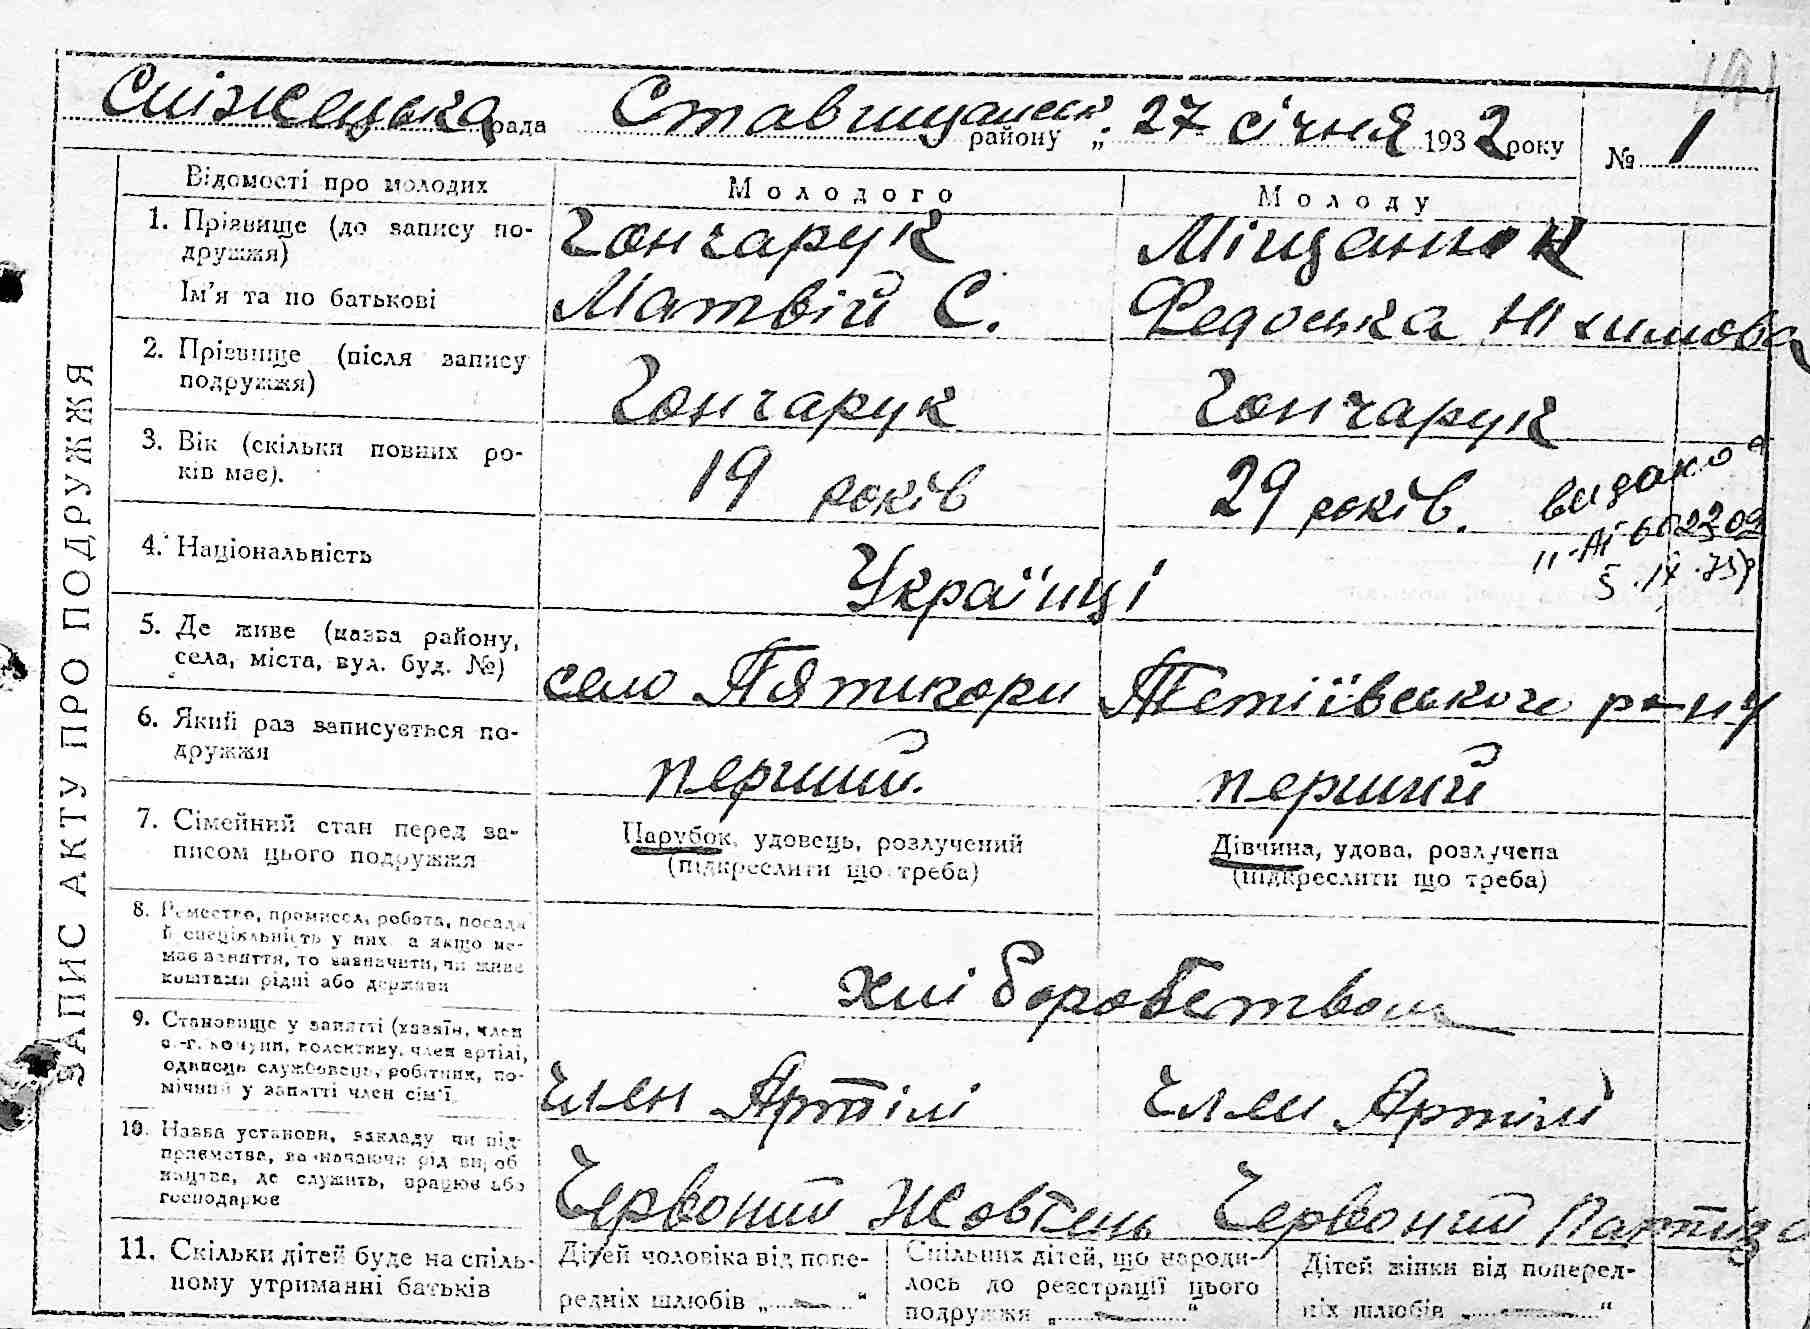 Сніжецька рада Ставищанськ. району „ 27 січня 1932 року № 1
ЗАПИС АКТУ ПРО ПОДРУЖЖЯ
Відомості про молодих
Молодого
Молоду
1. Прізвище (до запису по-
дружжя)
Гончарук
Міщанюк
Ім'я та по батькові
Матвій С.
Федоська Юхимова
2. Прізвище (після запису
подружжя)
Гончарук
Гончарук
3. Вік (скільки повних ро-
ків має).
19 років
29 років.
видано
5.IX.75р
4. Національність
Українці
5. Де живе (назва району,
села, міста, вул. буд. №)
село Пятигори Тетіївського р-ну
6. Який раз записується по-
дружжя
перший.
перший
7. Сімейний стан перед за-
писом цього подружжя
Парубок, удовець, розлучений
(підкреслити що треба)
Дівчина, удова, розлучена
(підкреслити що треба)
8. Ремество, промисел, робота, посада
й спеціяльність у них, а якщо не-
має заняття, то зазначити, чи живе
коштами рідні або держави
хліборобством
9. Становище у занятті (хазяїн, член
с.-г. комуни, колективу, член артілі,
одинець службовець, робітник, по-
мічний у занятті член сім'ї.
член Артілі
член Артілі
10. Назва установи, закладу чи під-
приємства, де служить, працює або
господарює
Червоний Жовтень
Червоний Партіза
11. Скільки дітей буде на спіль-
ному утриманні батьків
Дітей чоловіка від попе-
редніх шлюбів „ — “
Спільних дітей, що народи-
лось до реєстрації цього
подружжя „ — “
Дітей жінки від поперед-
ніх шлюбів „ — “